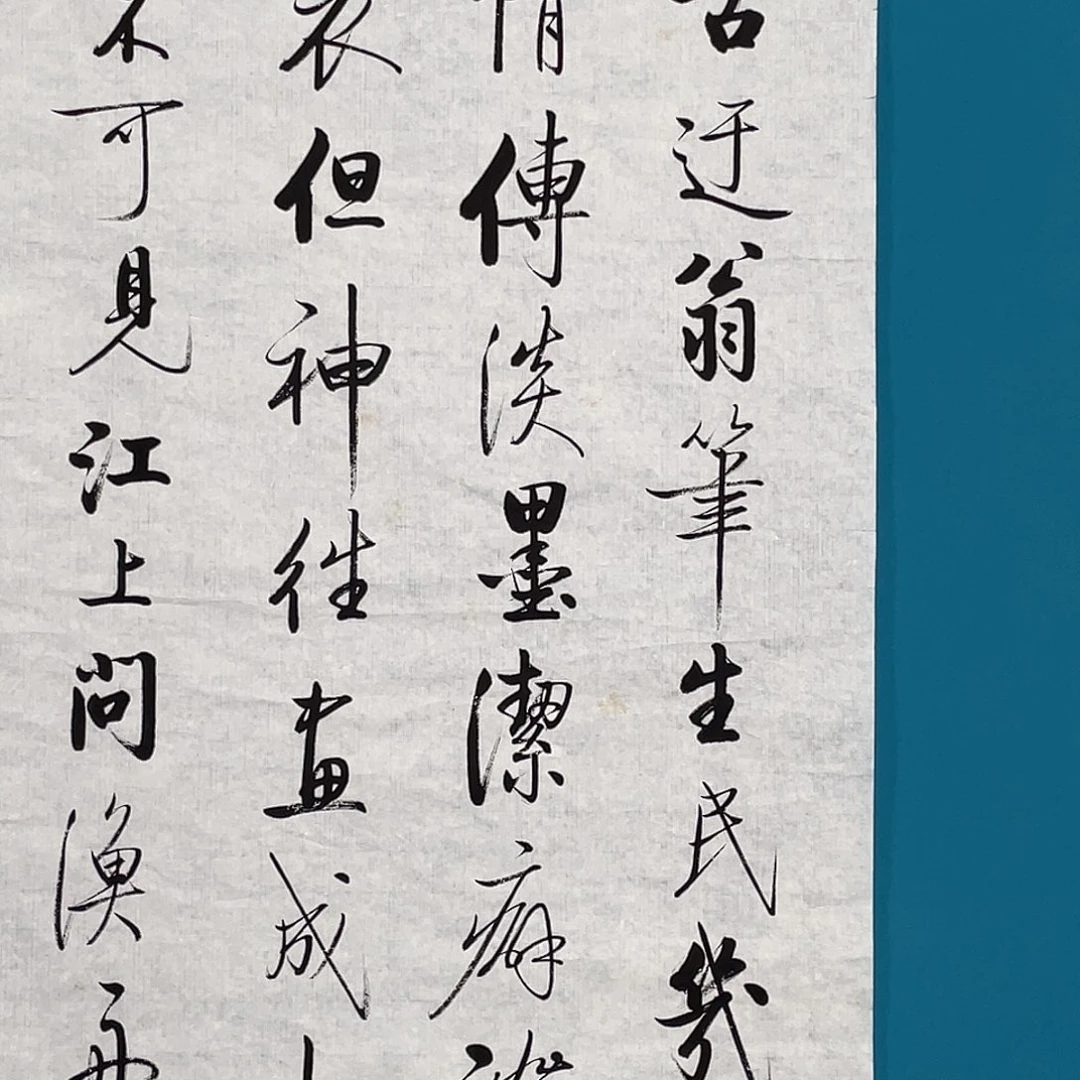 迂翁筆生民幾
情傳淡墨潔癖
衣但神往畫成
不可見江上問漁